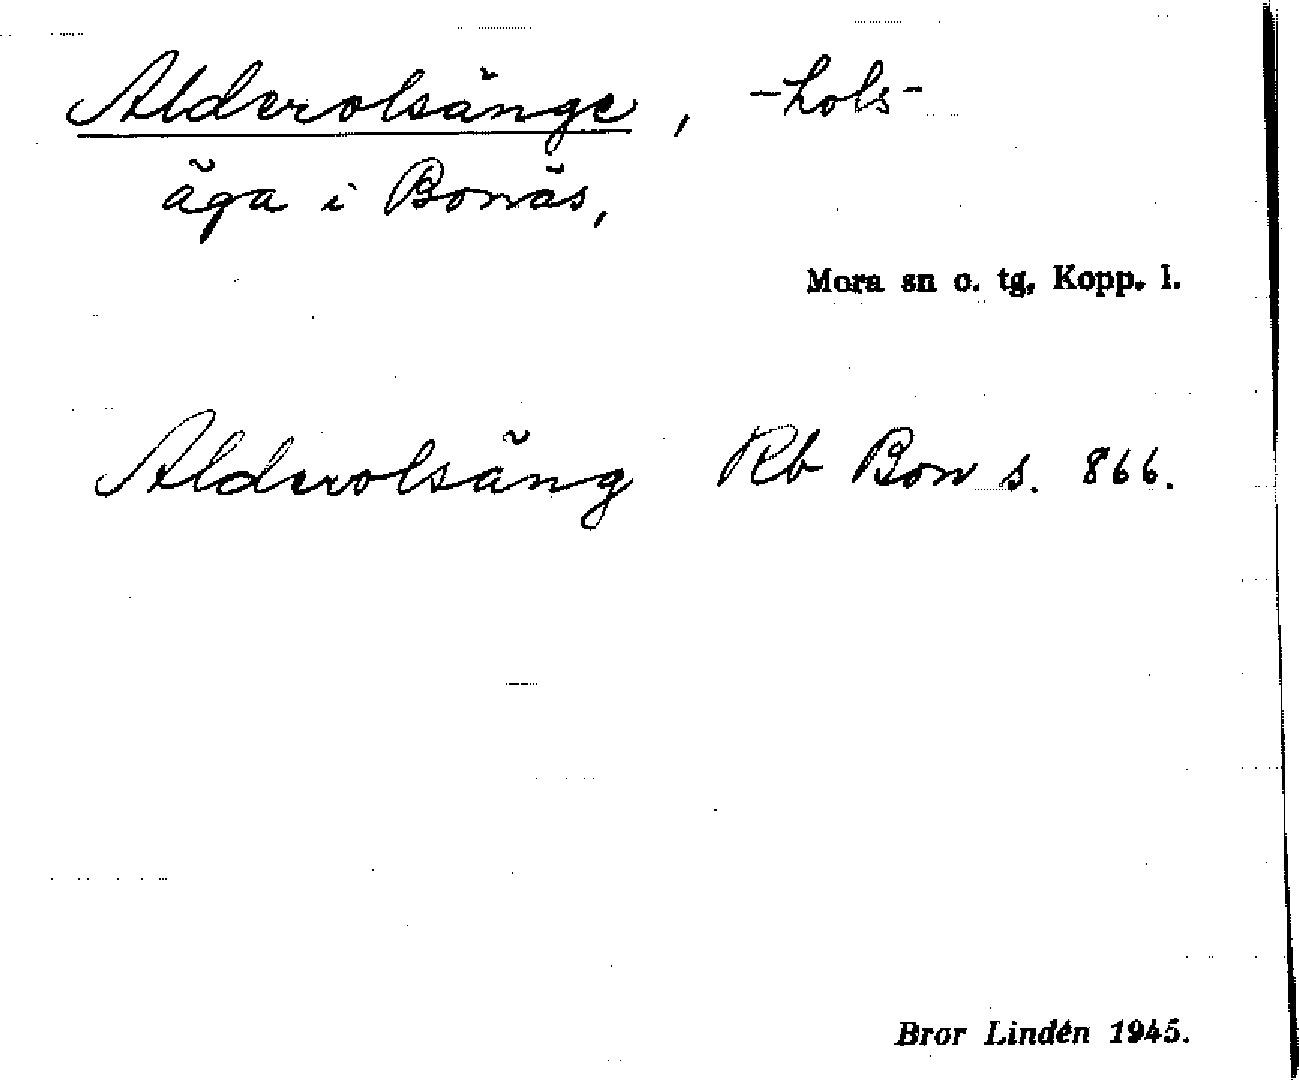 Alderolsänge, -hols-
äga i Bonäs,
Mora sn o. tg, Kopp. l.
Alderolsäng Rb Bon s. 866.
Bror Lindén 1945.